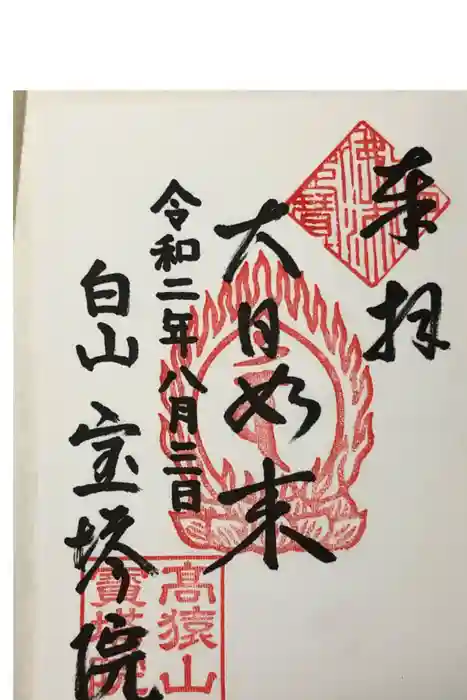 奉拝
大日如来
令和二年八月三日
白山 宝塔院
高猿山
寳塔院